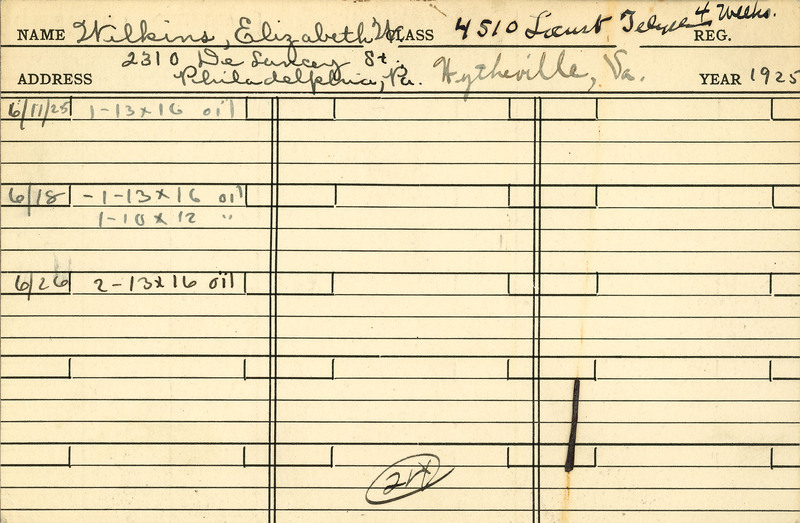 NAME Wilkins, Elizabeth W. CLASS 4510 Locust 4 Weeks. REG.
2310 De Lancey St.
ADDRESS Philadelphia, Pa. Wytheville, Va. YEAR 1925
6/11/25 1-13x16 oil
6/18 -1-13x16 oil
1-10x12 "
6/26 2-13x16 oil